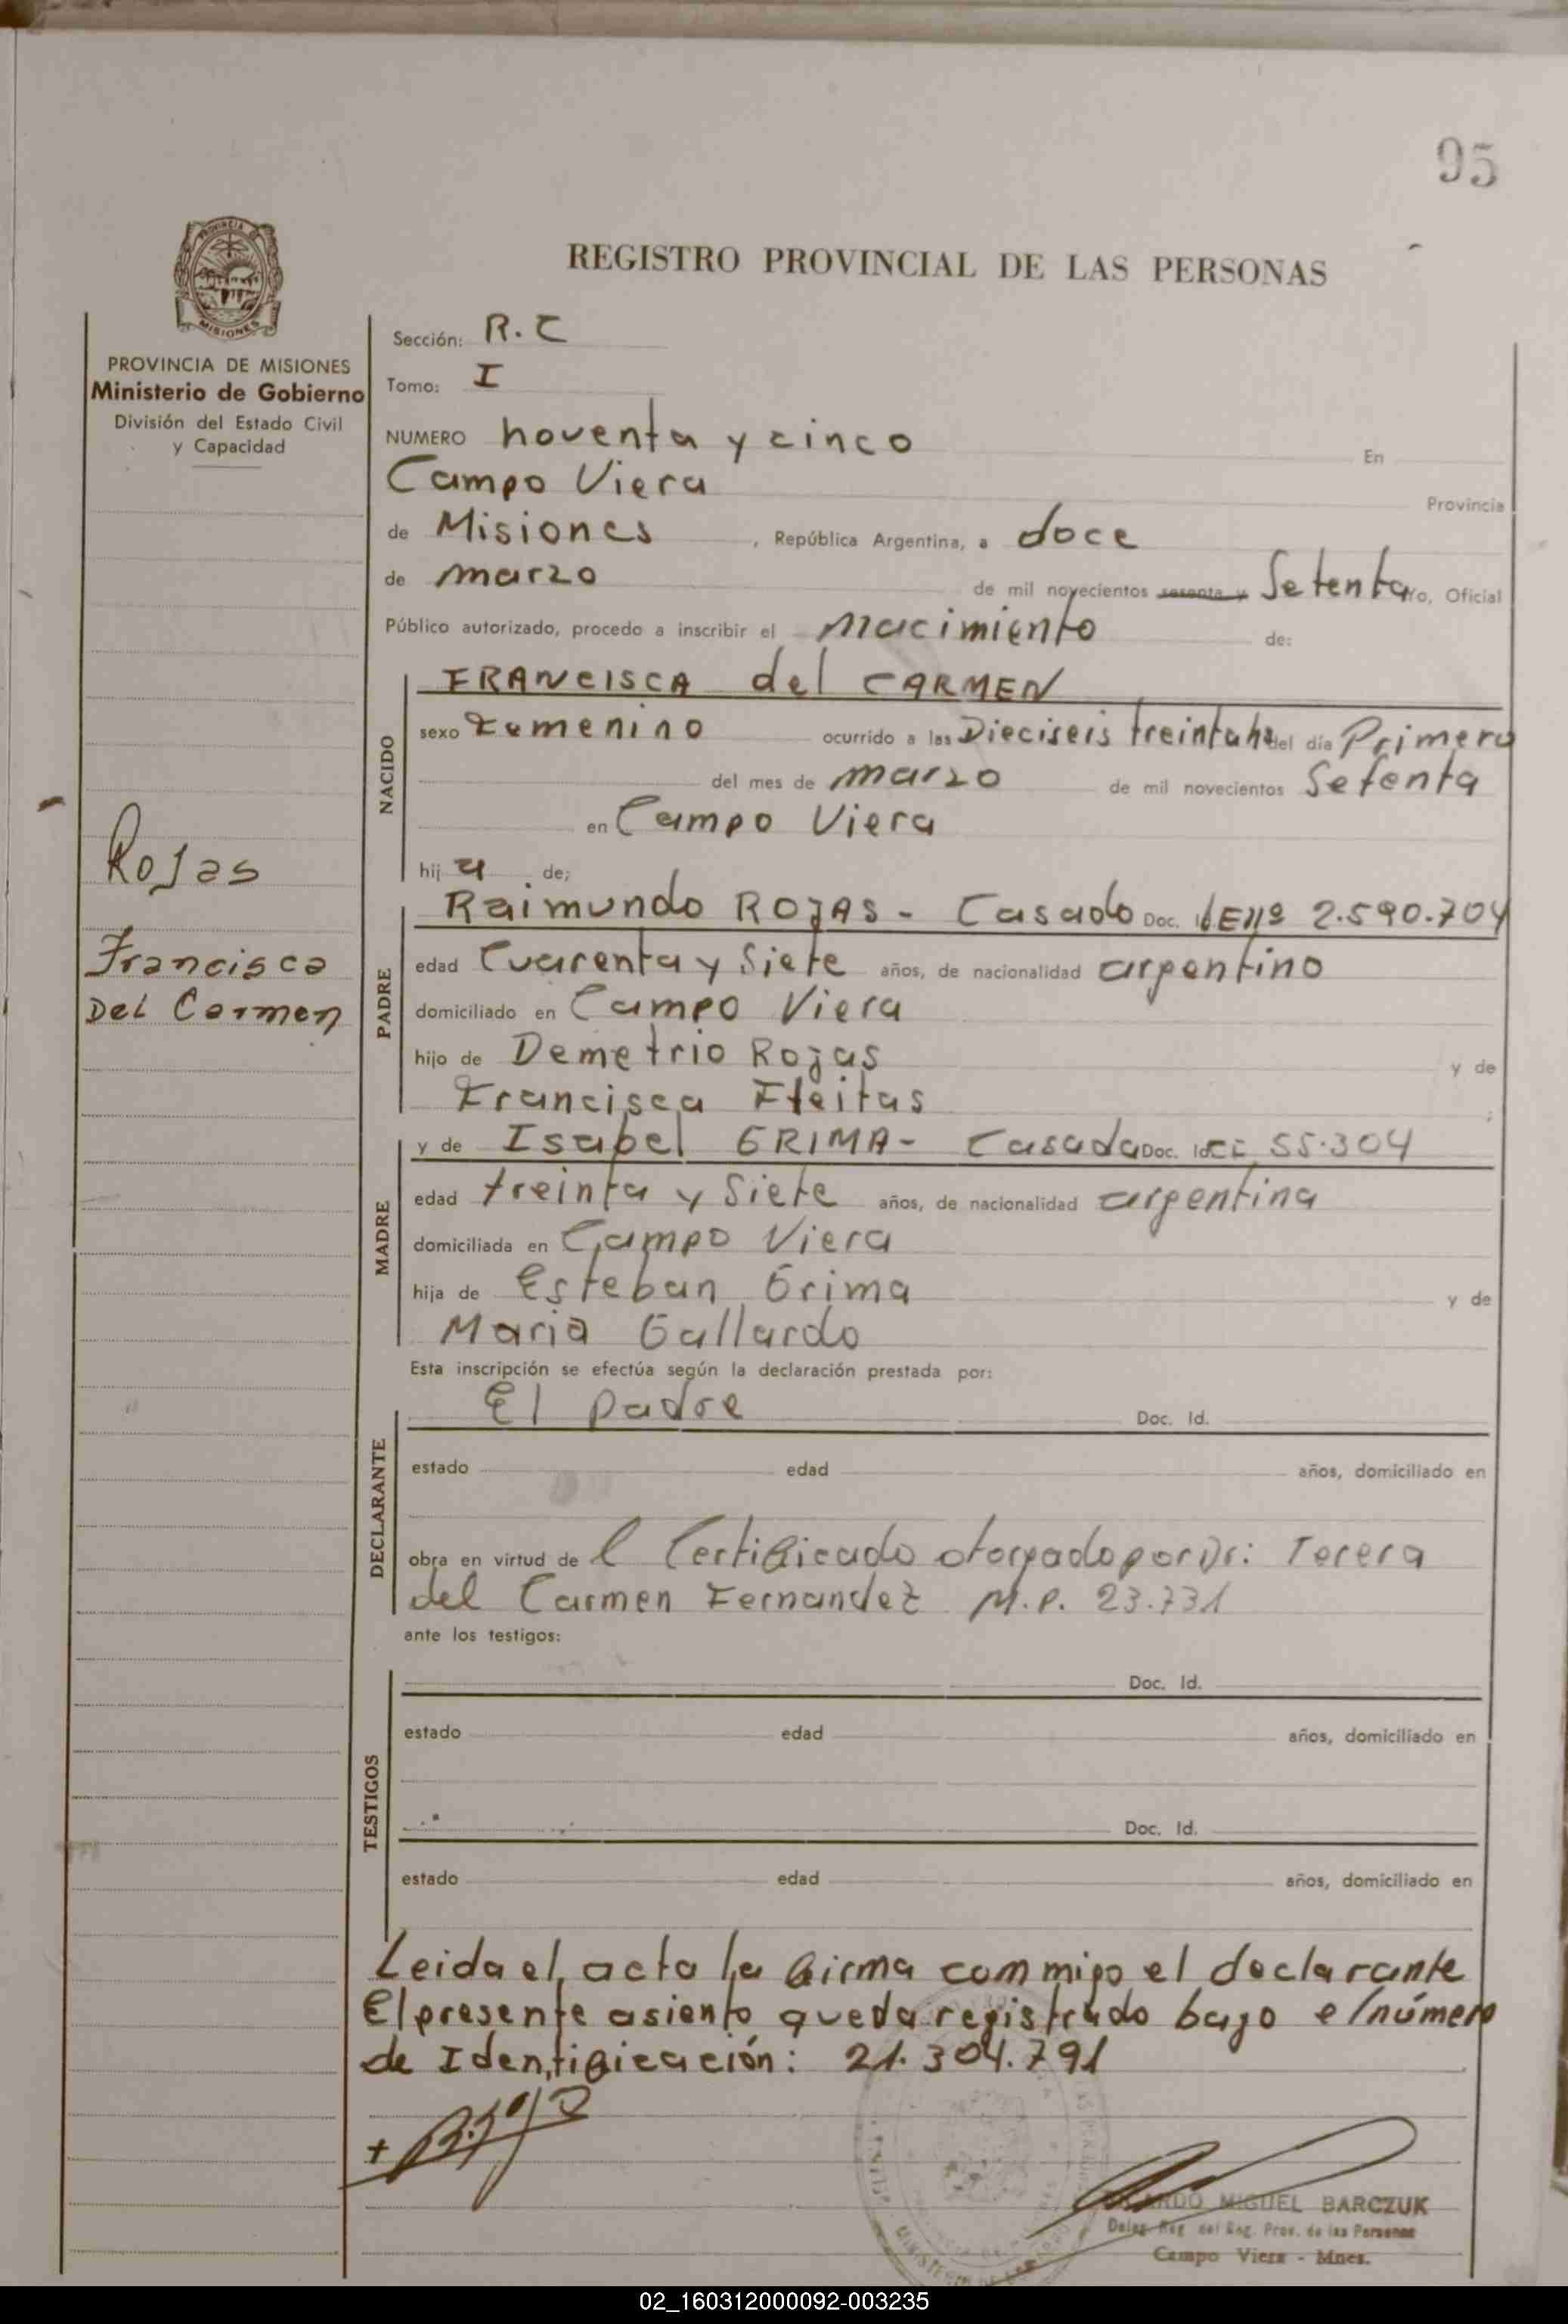 95
REGISTRO PROVINCIAL DE LAS PERSONAS
PROVINCIA DE
MISIONES
PROVINCIA DE MISIONES
Ministerio de Gobierno
División del Estado Civil
y Capacidad
Rojas
Francisca
Del Carmen
Sección: R.C
Tomo: I
NUMERO noventa y cinco En
Campo Viera Provincia
de Misiones, República Argentina, a doce
de marzo de mil novecientos sesenta y Setenta Yo, Oficial
Público autorizado, procedo a inscribir el nacimiento de:
NACIDO
FRANCISCA del CARMEN
sexo Femenino ocurrido a las Dieciseis treinta hs del día Primero
del mes de marzo de mil novecientos Setenta
en Campo Viera
hija de;
PADRE
Raimundo ROJAS - Casado Doc. Id LE nº 2.590.704
edad Cuarenta y Siete años, de nacionalidad argentino
domiciliado en Campo Viera
hijo de Demetrio Rojas y de
Francisca Fleitas ;
MADRE
y de Isabel GRIMA - Casada Doc. Id CI 55.304
edad treinta y Siete años, de nacionalidad argentina
domiciliada en Campo Viera
hija de Esteban Grima y de
Maria Gallardo
Esta inscripción se efectúa según la declaración prestada por:
DECLARANTE
El padre Doc. Id.
estado edad años, domiciliado en
obra en virtud de l Certificado otorgado por Dr: Teresa
del Carmen Fernandez M.P. 23.731
ante los testigos:
TESTIGOS
Doc. Id.
estado edad años, domiciliado en
Doc. Id.
estado edad años, domiciliado en
Leida el acta la firma conmigo el declarante
El presente asiento queda registrado bajo el número
de Identificación: 21.304.791
MIGUEL BARCZUK
Deleg. Reg. del Reg. Prov. de las Personas
Campo Viera - Mnes.
02_160312000092-003235